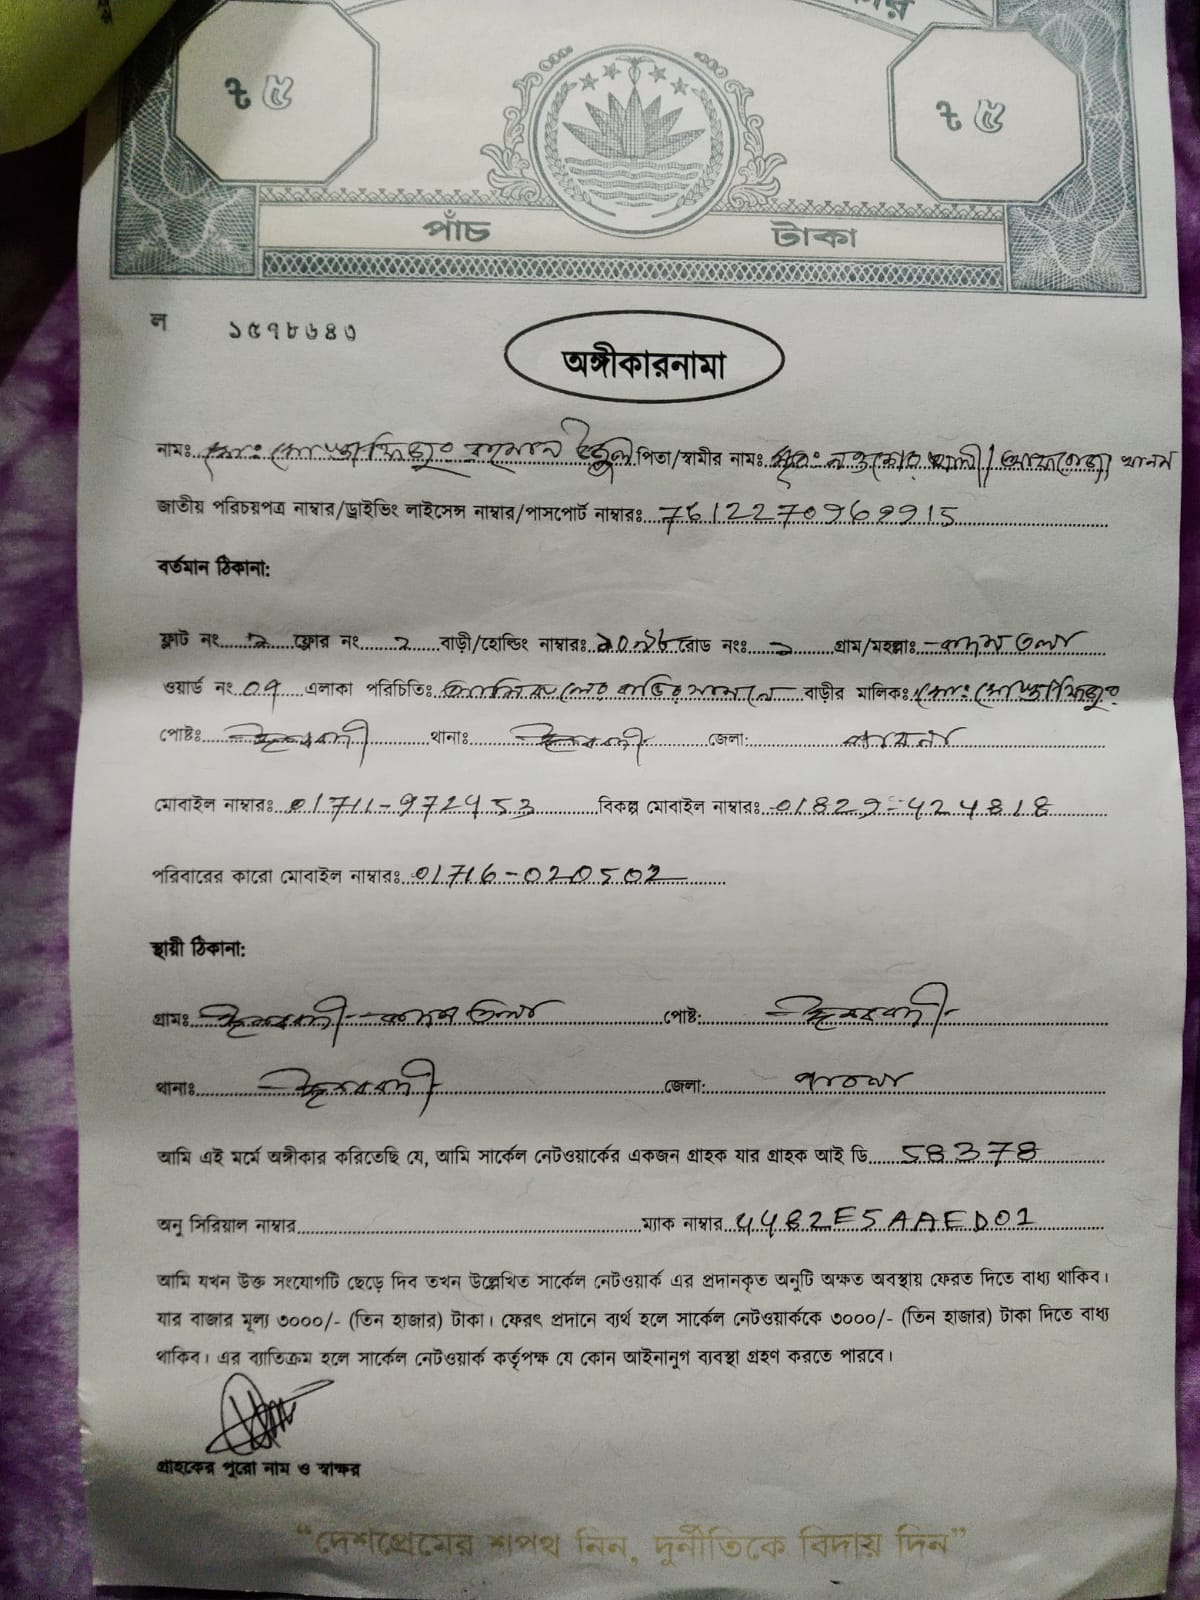 ৳ ৫
৳ ৫
পাঁচ টাকা
ল ১৫৭৮৬৪৩
অঙ্গীকারনামা
নামঃ মোঃ মোস্তাফিজুর রহমান পিতা/স্বামীর নামঃ মৃতঃ খানম
জাতীয় পরিচয়পত্র নাম্বার/ড্রাইভিং লাইসেন্স নাম্বার/পাসপোর্ট নাম্বারঃ
বর্তমান ঠিকানা:
ফ্লাট নং ২ ফ্লোর নং ২ বাড়ী/হোল্ডিং নাম্বারঃ রোড নংঃ গ্রাম/মহল্লাঃ
ওয়ার্ড নং ০৭ এলাকা পরিচিতিঃ সামনে বাড়ীর মালিকঃ মোঃ মোস্তাফিজুর
পোষ্টঃ ঈশ্বরদী থানাঃ ঈশ্বরদী জেলা: পাবনা
মোবাইল নাম্বারঃ 01711-972453 বিকল্প মোবাইল নাম্বারঃ 01829-424818
পরিবারের কারো মোবাইল নাম্বারঃ 01716-020502
স্থায়ী ঠিকানা:
গ্রামঃ ঈশ্বরদী পোষ্ট: ঈশ্বরদী
থানাঃ ঈশ্বরদী জেলা: পাবনা
আমি এই মর্মে অঙ্গীকার করিতেছি যে, আমি সার্কেল নেটওয়ার্কের একজন গ্রাহক যার গ্রাহক আই ডি 58378
অনু সিরিয়াল নাম্বার ম্যাক নাম্বার 44B2E5AAED01
আমি যখন উক্ত সংযোগটি ছেড়ে দিব তখন উল্লেখিত সার্কেল নেটওয়ার্ক এর প্রদানকৃত অনুটি অক্ষত অবস্থায় ফেরত দিতে বাধ্য থাকিব।
যার বাজার মূল্য ৩০০০/- (তিন হাজার) টাকা। ফেরৎ প্রদানে ব্যর্থ হলে সার্কেল নেটওয়ার্ককে ৩০০০/- (তিন হাজার) টাকা দিতে বাধ্য
থাকিব। এর ব্যাতিক্রম হলে সার্কেল নেটওয়ার্ক কর্তৃপক্ষ যে কোন আইনানুগ ব্যবস্থা গ্রহণ করতে পারবে।
গ্রাহকের পুরো নাম ও স্বাক্ষর
“দেশপ্রেমের শপথ নিন, দুর্নীতিকে বিদায় দিন”